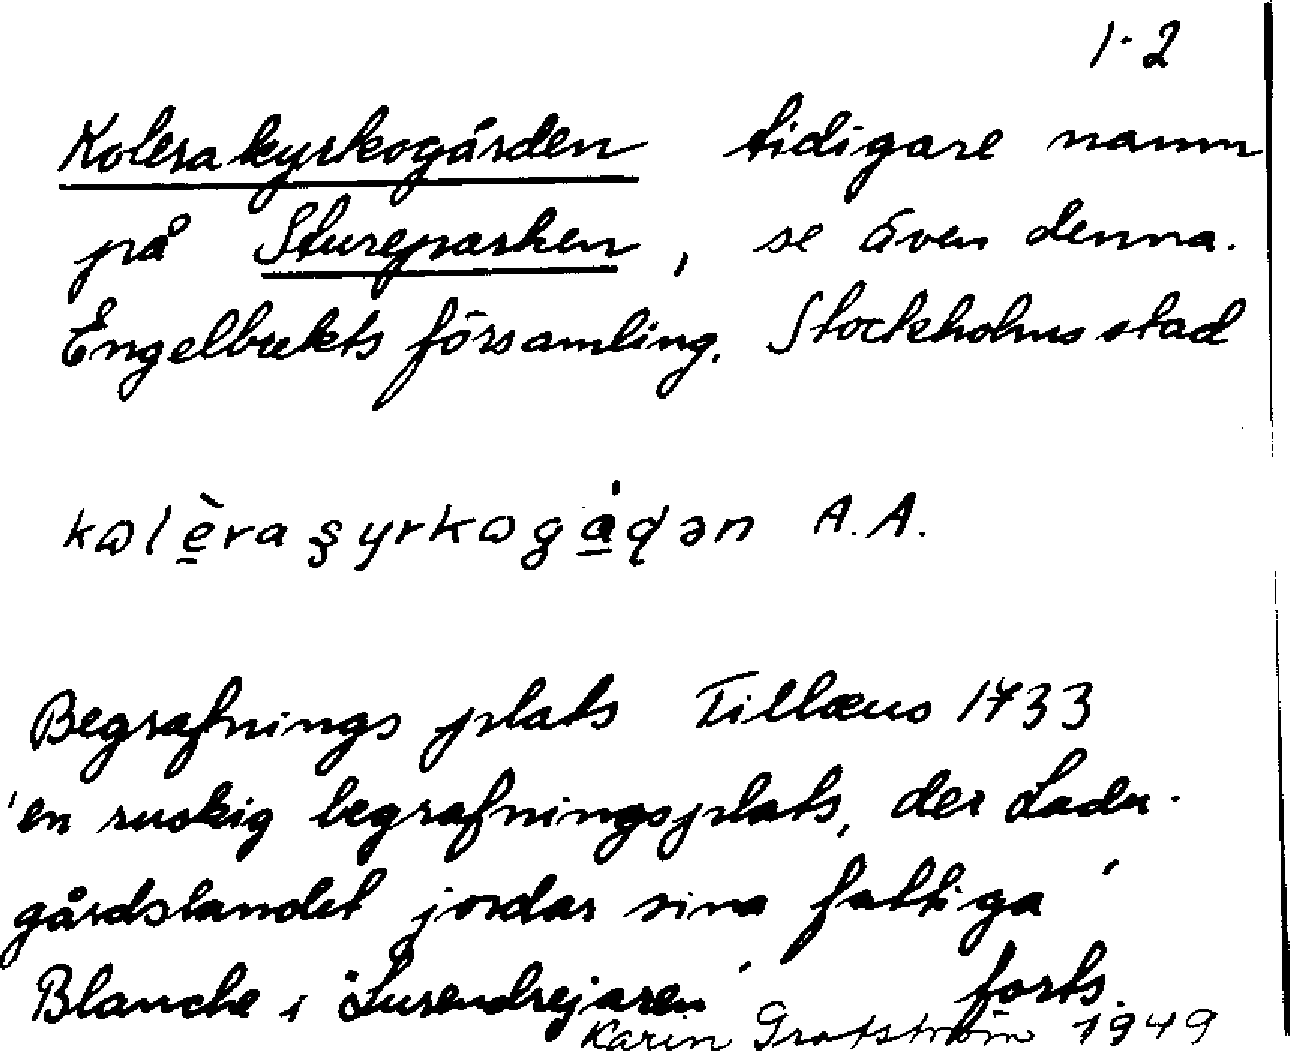 1-2
Kolerakyrkogården tidigare namn
på Stureparken, se även denna.
Engelbrekts församling. Stockholms stad
kɷlèraşyrkɷgáɖən A.A.
Begrafnings plats Tillæus 1733
'en ruskig begrafningsplats, der Ladu-
gårdslandet jordar sina fattiga'
Blanche i "Lurendrejaren" forts.
Karin Grafström 1949